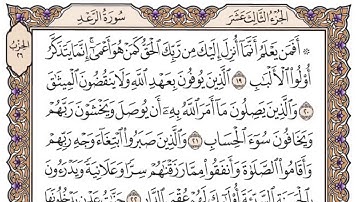 الجزء الثالث عشر
سورة الرعد
الحزب ٢٦
۞ أَفَمَن يَعْلَمُ أَنَّمَآ أُنزِلَ إِلَيْكَ مِن رَّبِّكَ ٱلْحَقُّ كَمَنْ هُوَ أَعْمَىٰٓ ۚ إِنَّمَا يَتَذَكَّرُ
أُو۟لُوا۟ ٱلْأَلْبَٰبِ ١٩ ٱلَّذِينَ يُوفُونَ بِعَهْدِ ٱللَّهِ وَلَا يَنقُضُونَ ٱلْمِيثَٰقَ
٢٠ وَٱلَّذِينَ يَصِلُونَ مَآ أَمَرَ ٱللَّهُ بِهِۦٓ أَن يُوصَلَ وَيَخْشَوْنَ رَبَّهُمْ
وَيَخَافُونَ سُوٓءَ ٱلْحِسَابِ ٢١ وَٱلَّذِينَ صَبَرُوا۟ ٱبْتِغَآءَ وَجْهِ رَبِّهِمْ
وَأَقَامُوا۟ ٱلصَّلَوٰةَ وَأَنفَقُوا۟ مِمَّا رَزَقْنَٰهُمْ سِرًّا وَعَلَانِيَةً وَيَدْرَءُونَ
بِٱلْحَسَنَةِ ٱلسَّيِّئَةَ أُو۟لَٰٓئِكَ لَهُمْ عُقْبَى ٱلدَّارِ ٢٢ جَنَّٰتُ عَدْنٍ يَدْخُلُونَهَا